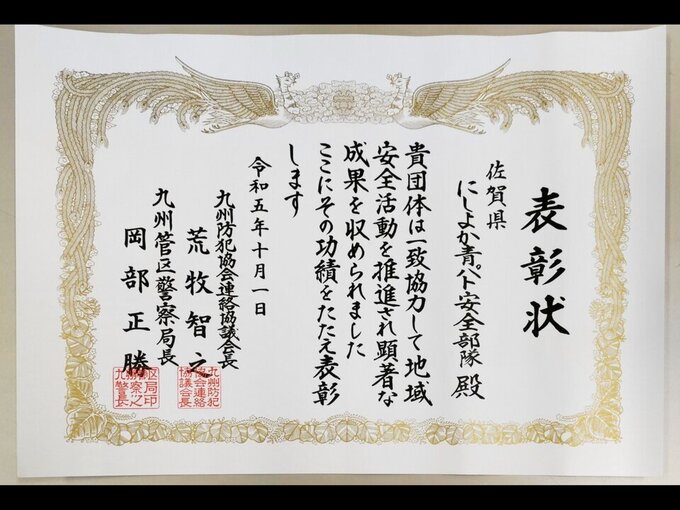 表彰状
佐賀県
にしよか青パト安全部隊 殿
貴団体は一致協力して地域
安全活動を推進され顕著な
成果を収められました
ここにその功績をたたえ表彰
します
令和五年十月一日
九州防犯協会連絡協議会長
荒牧智之
九州管区警察局長
岡部正勝
九州防犯
協会連絡
協議会長